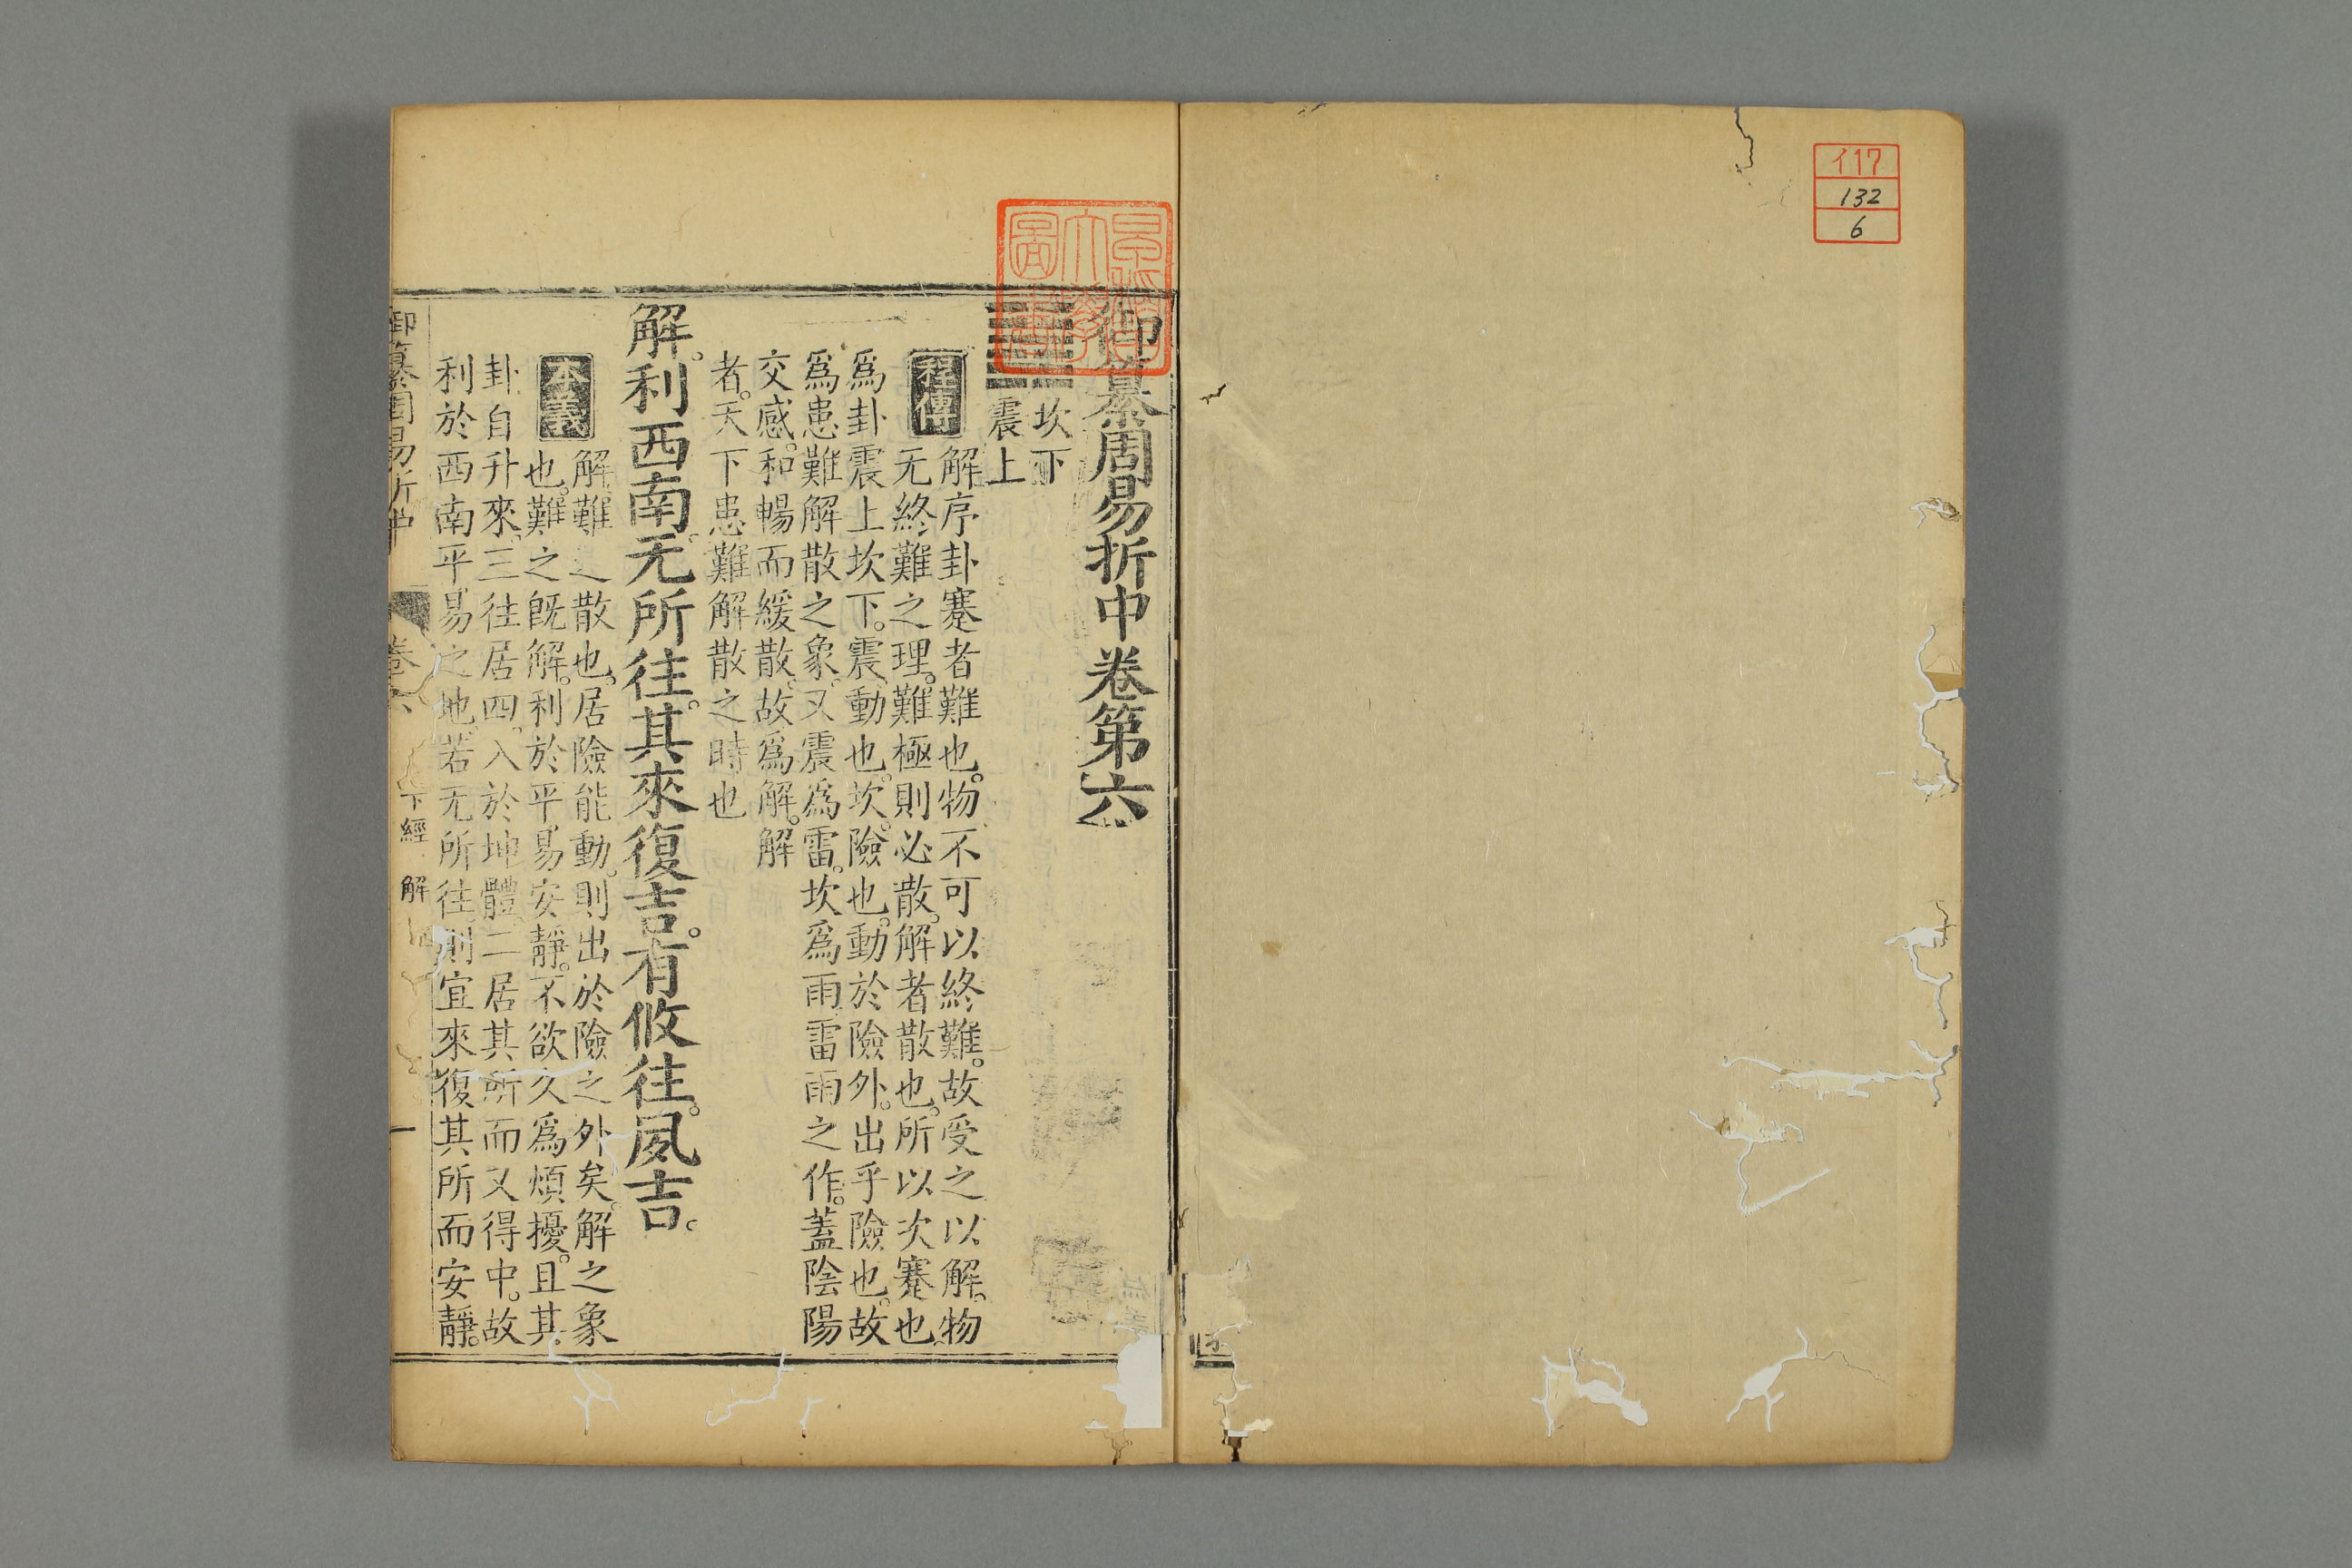 イ17
132
6
御纂周易折中卷第六
坎下
震上
程傳
解序卦蹇者難也。物不可以終難。故受之以解。物
无終難之理。難極則必散。解者散也。所以次蹇也。
爲卦震上坎下。震動也。坎險也。動於險外。出乎險也。故
爲患難解散之象。又震爲雷。坎爲雨。雷雨之作。蓋陰陽
交感。和暢而緩散。故爲解。解
者。天下患難解散之時也
解。利西南。无所往。其來復吉。有攸往。夙吉。
本義
解。難之散也。居險能動。則出於險之外矣。解之象
也。難之既解。利於平易安靜。不欲久爲煩擾。且其
卦自升來。三往居四。入於坤體。二居其所而又得中。故
利於西南平易之地。若无所往。則宜來復其所而安靜。
御纂周易折中 卷六 下經 解 一